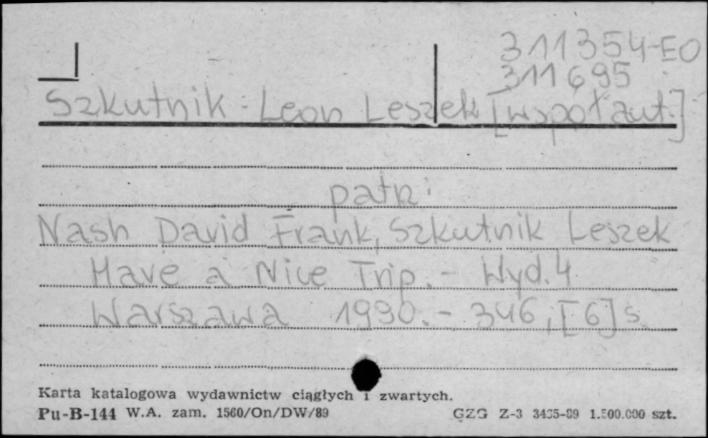 311354-EO
311695
Szkutnik - Leon Leszek [współaut.]
patrz:
Nash David Frank, Szkutnik Leszek
Have a Nice Trip. - Wyd. 4
Warszawa 1990. - 346, [6] s.
Karta katalogowa wydawnictw ciągłych i zwartych.
Pu-B-144 W.A. zam. 1560/On/DW/89 GZG Z-3 3435-89 1.500.000 szt.